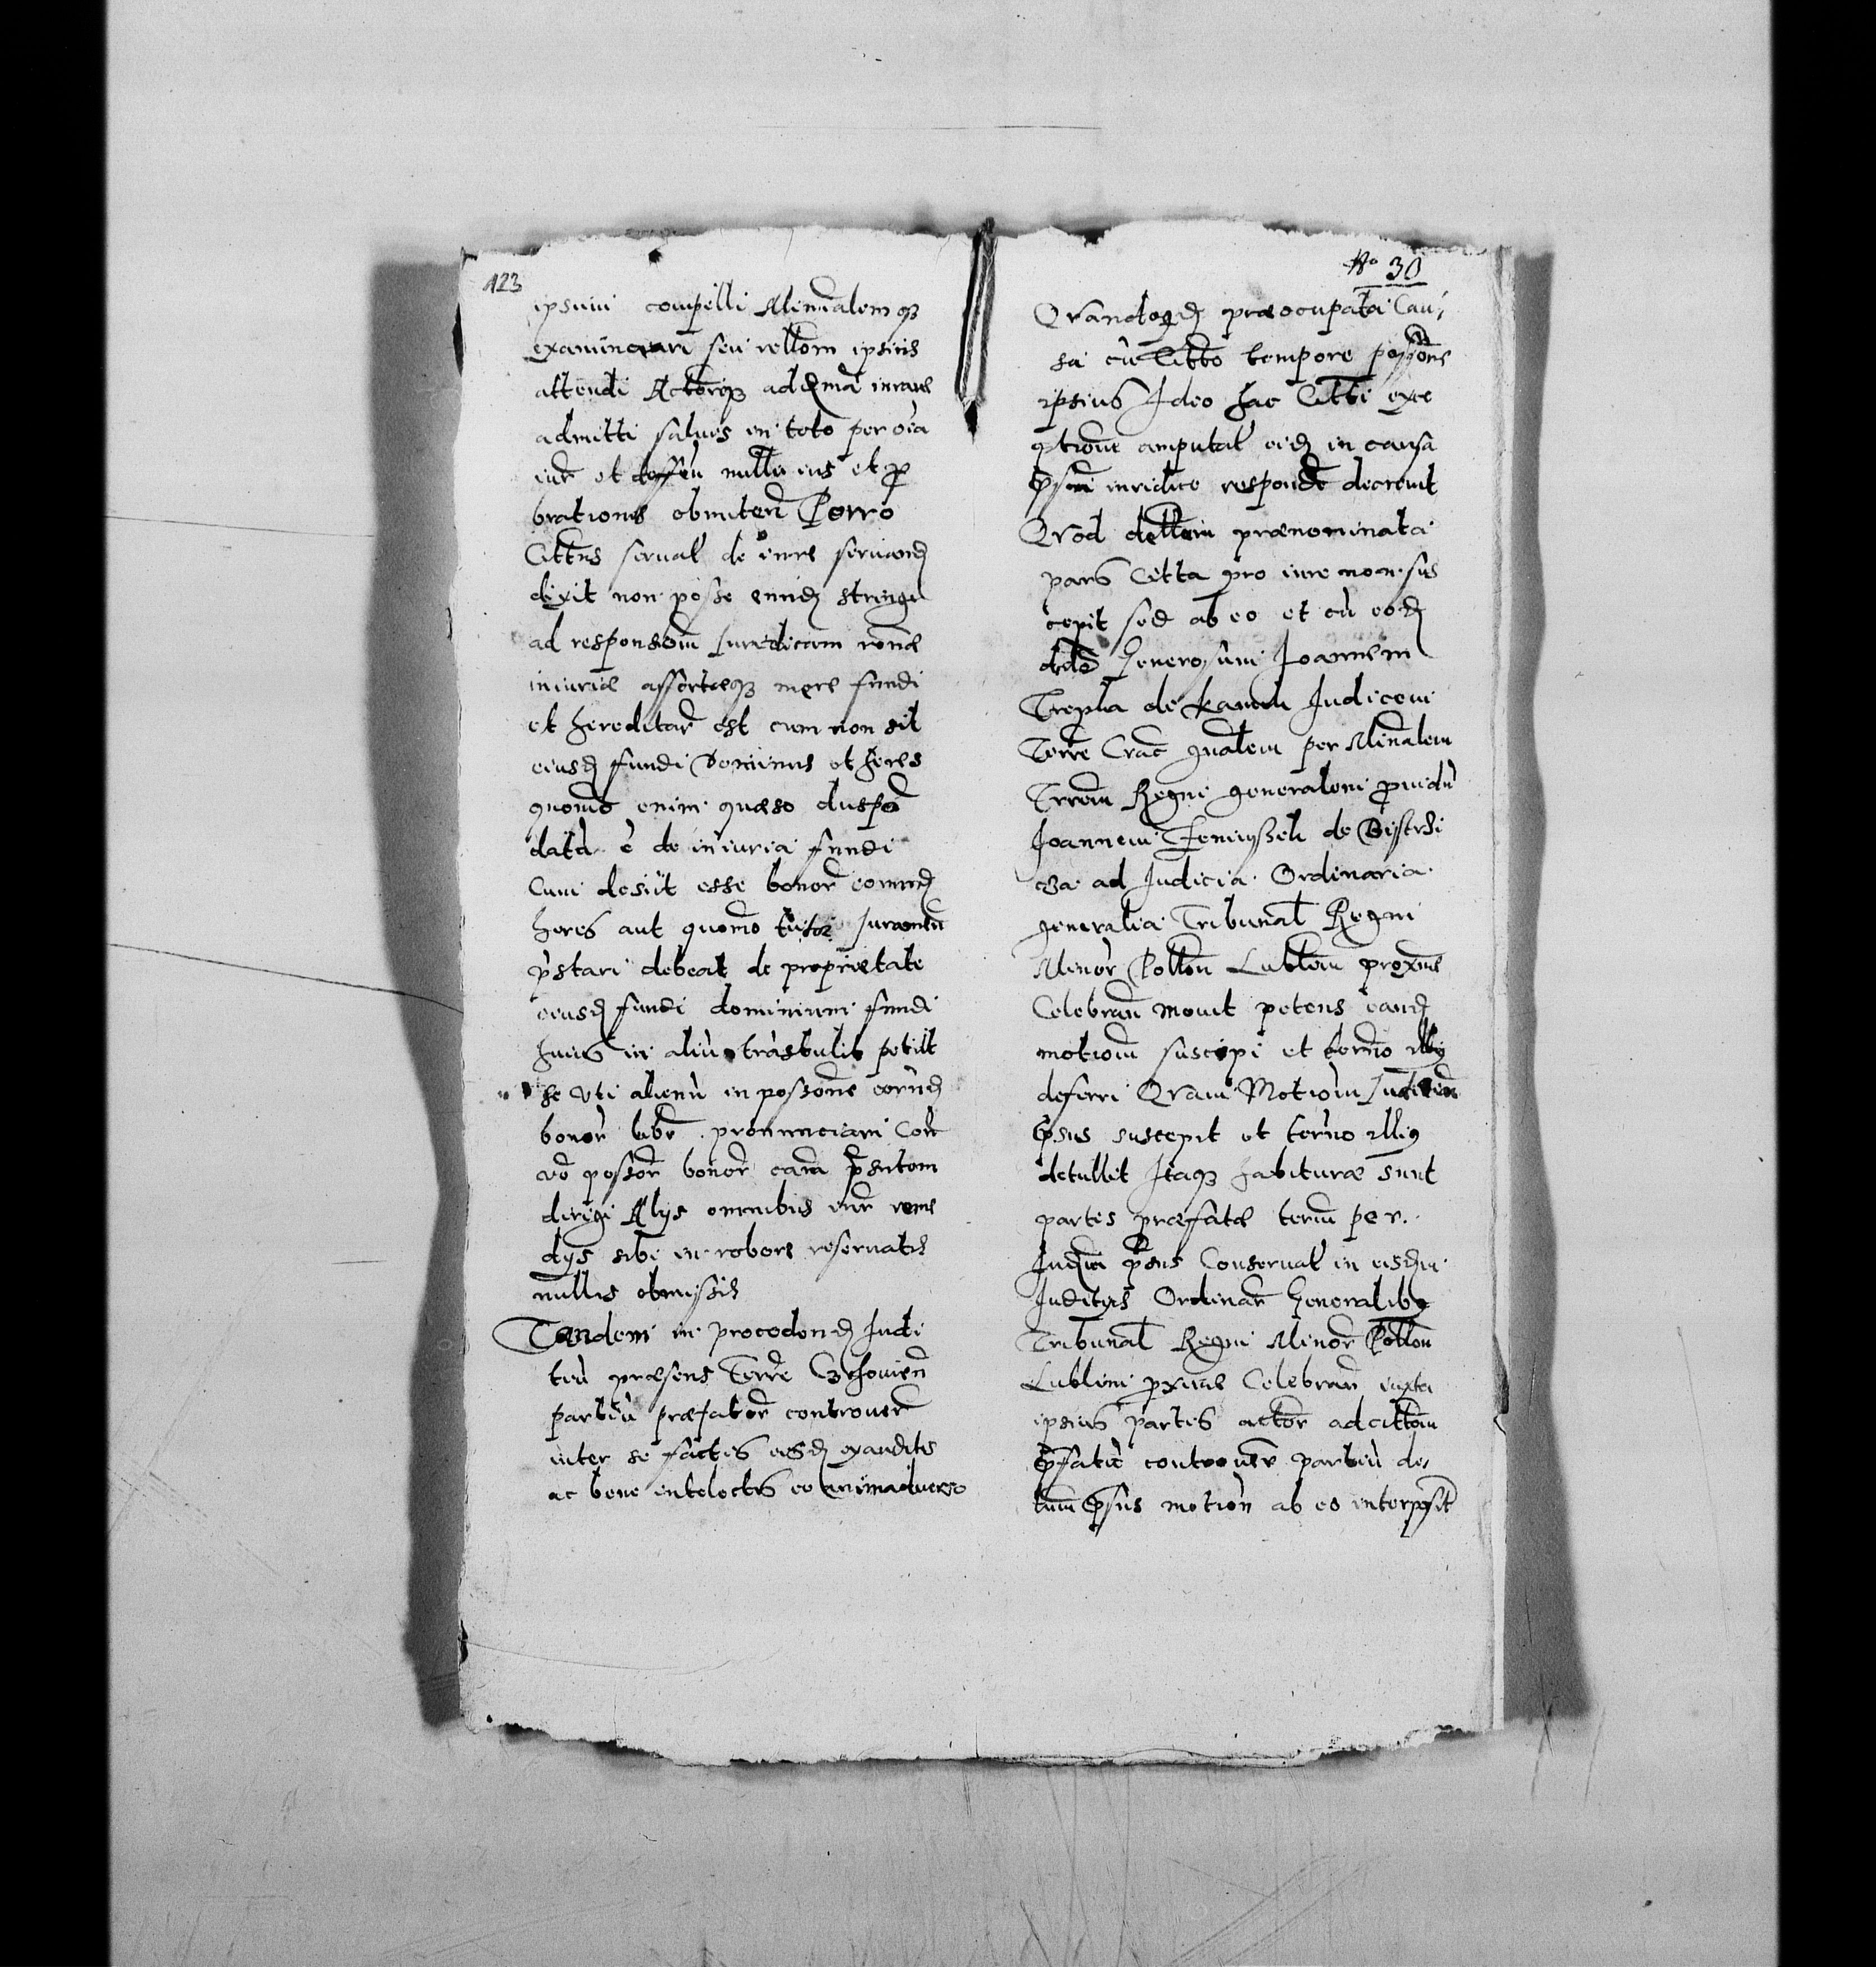 123
ipsum compelli Minralem q3
examinari seu relłom ipsius
attendi Actorq3 ad
admitti salvis in toto per oia
iur et nullis eius et p
brationis obmitten Porro
Cittus servat de iure servand
dixit non posse eund stringi
ad responsiom Juredicam ronæ
iniuriæ assertæq3 mere fundi
et hereditar est cum non sit
eiusd fundi Dominus et heres
quomo enim quæso
data e de iniuria fundi
Cum desiit esse bonor eorund
heres aut quomo Juramen
pstari debeat de proprietate
eiusd fundi dominium fundi
huius in aliu trastulit petiit
se uti alienu in possone eorud
bonor libr pronunciari Con
vo possor bonor eam
dirigi Alys omnibus iur reme
dys sibi in robore reservatis
nullis obmissis
Tandem in procedend Judi
tiu præsens Terre Czchovien
partiu præfator controver
inter se factis eisd exauditis
ac bene intelectis eo animadverso
No 30
Qvandoqd præocupata Cau,
sa cu Citto tempore possione
ipsius Ideo hac Citti exce
ptione amputat eid in causa
psenti iuridice responde decrevit
Qvod prænominata
pars Citta pro iure non sus
cepit sed ab eo et cu eod
Generosum Joannem
Trepka de Judicem
Terre Crac gnalem per Minralem
Trrem Regni generalem pvidu
Joannem de Bystrzi
cza ad Judicia Ordinaria
generalia Tribunal Regni
Minor Pollon Lublini proxime
Celebran movit petens eand
motiom suscipi et termo illi9
deferri Qvam Motiom
psus suscepit et termo illi9
detullit Itaq3 habituræ sunt
partes præfatæ term per.
psus Conservat in eisdm
Juditys Ordinar Generalib9
Tribunal Regni Minor Pollon
Lublini pxime Celebran iuxta
ipsius partis actor ad cittom
pfatu controver partiu de,
psus motiom ab eo interposit